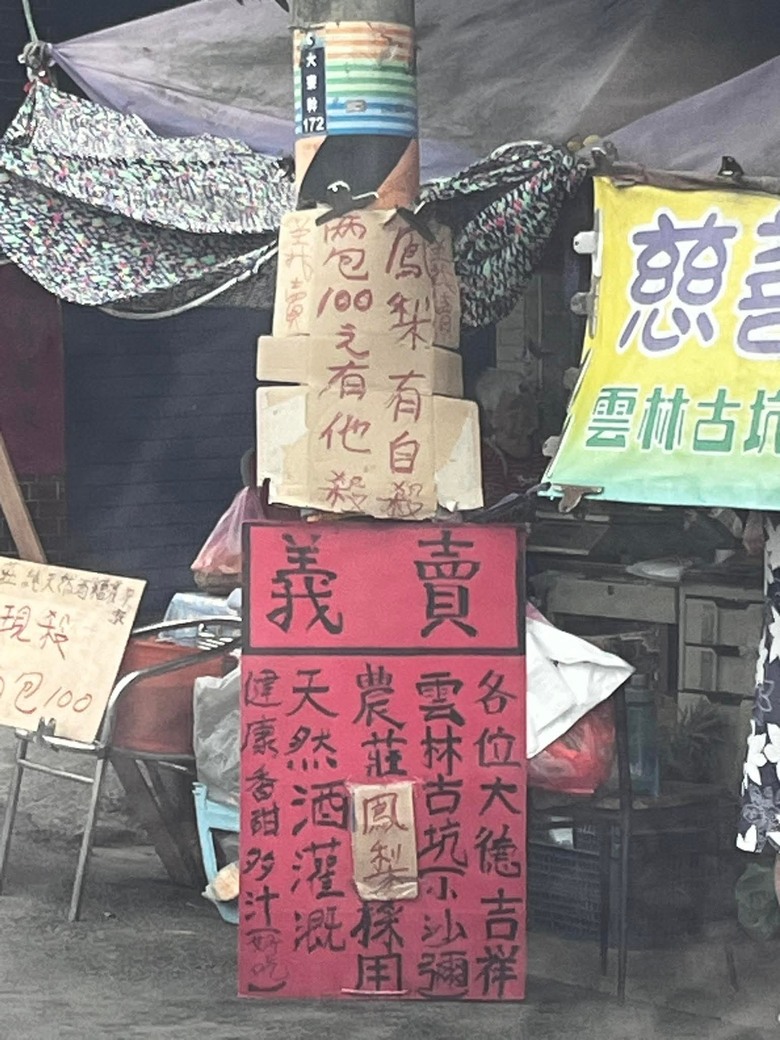 大寮幹
172
義賣
鳳梨有自殺
兩包100元有他殺
義賣
慈善
雲林古坑
義賣
各位大德吉祥
雲林古坑(小沙彌)
農莊鳳梨採用
天然酒灌溉
健康香甜多汁(好吃)
現殺
包100